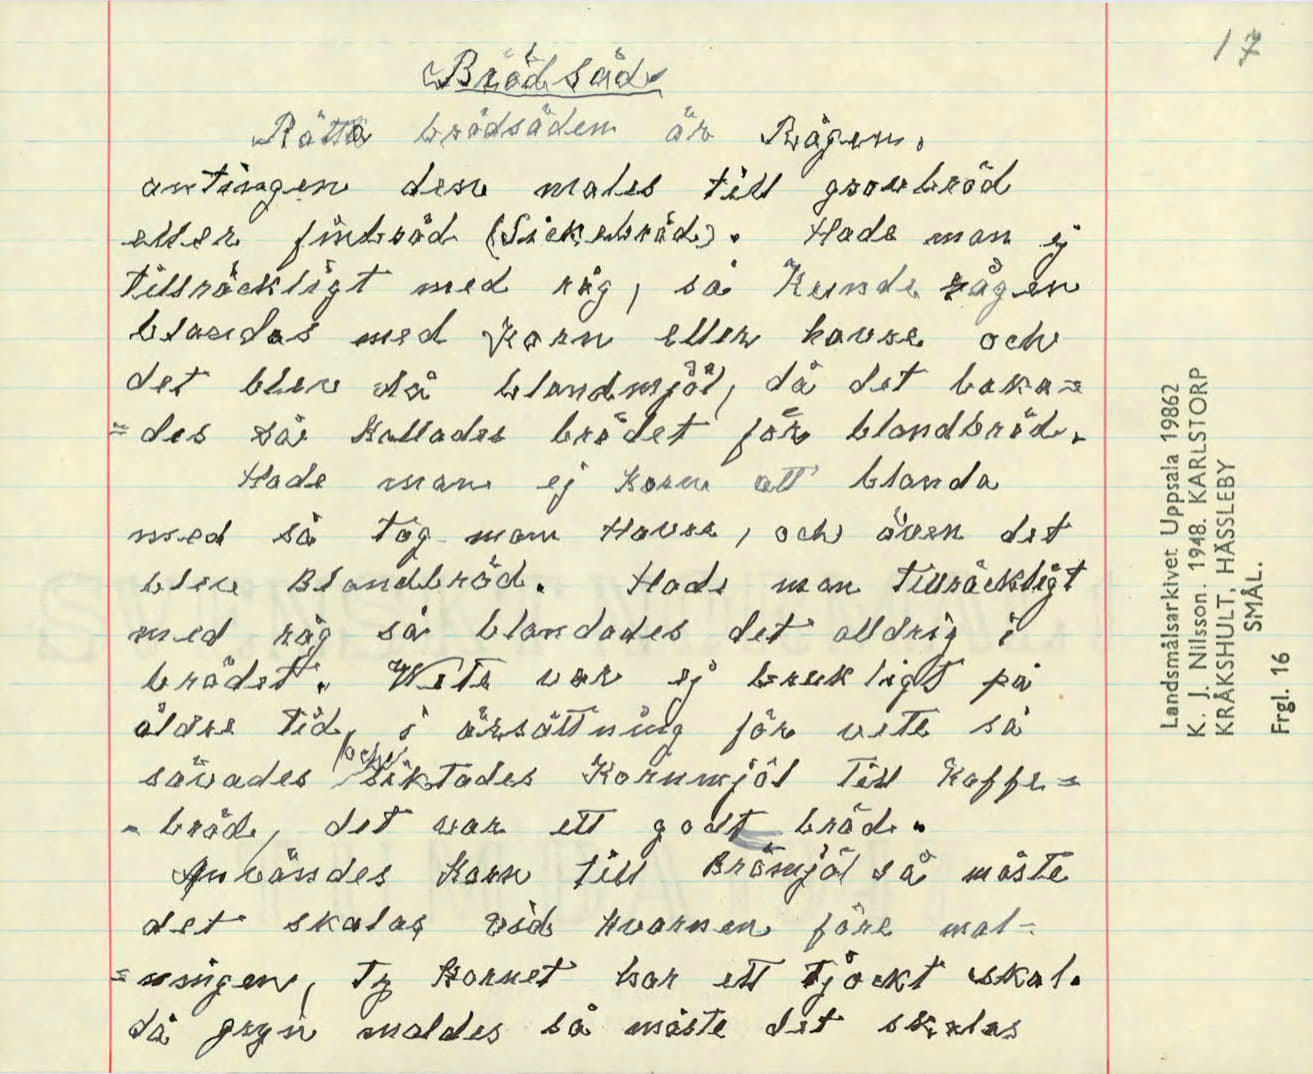 17
Brödsäd
Rätta brödsäden är Rågen,
antingen den males till grovbröd
eller finbröd (Sickebröd). Hade man ej
tillräckligt med råg, så kunde rågen
blandas med Korn eller havre och
det blev då blandmjöl, då det baka=
=des så kallades brödet för blandbröd.
Hade man ej Korn att blanda
med så tog man Havre, och även det
blev Blandbröd. Hade man tillräckligt
med råg så blandades det alldrig i
brödet. Wete var ej brukligt på
äldre tid, i ärsättning för vete så
såvades (och) siktades Kornmjöl till Kaffe=
- bröd, det var ett godt bröd.
Användes Korn till Brömjöl så måste
det skalas vid Kvarnen före mal-
=ningen, Ty Kornet har ett tjockt skal.
då gryn maldes så måste det skalas
Landsmålsarkivet Uppsala 19862
K. J. Nilsson. 1948. KARLSTORP
KRÅKSHULT, HÄSSLEBY
SMÅL.
Frgl. 16